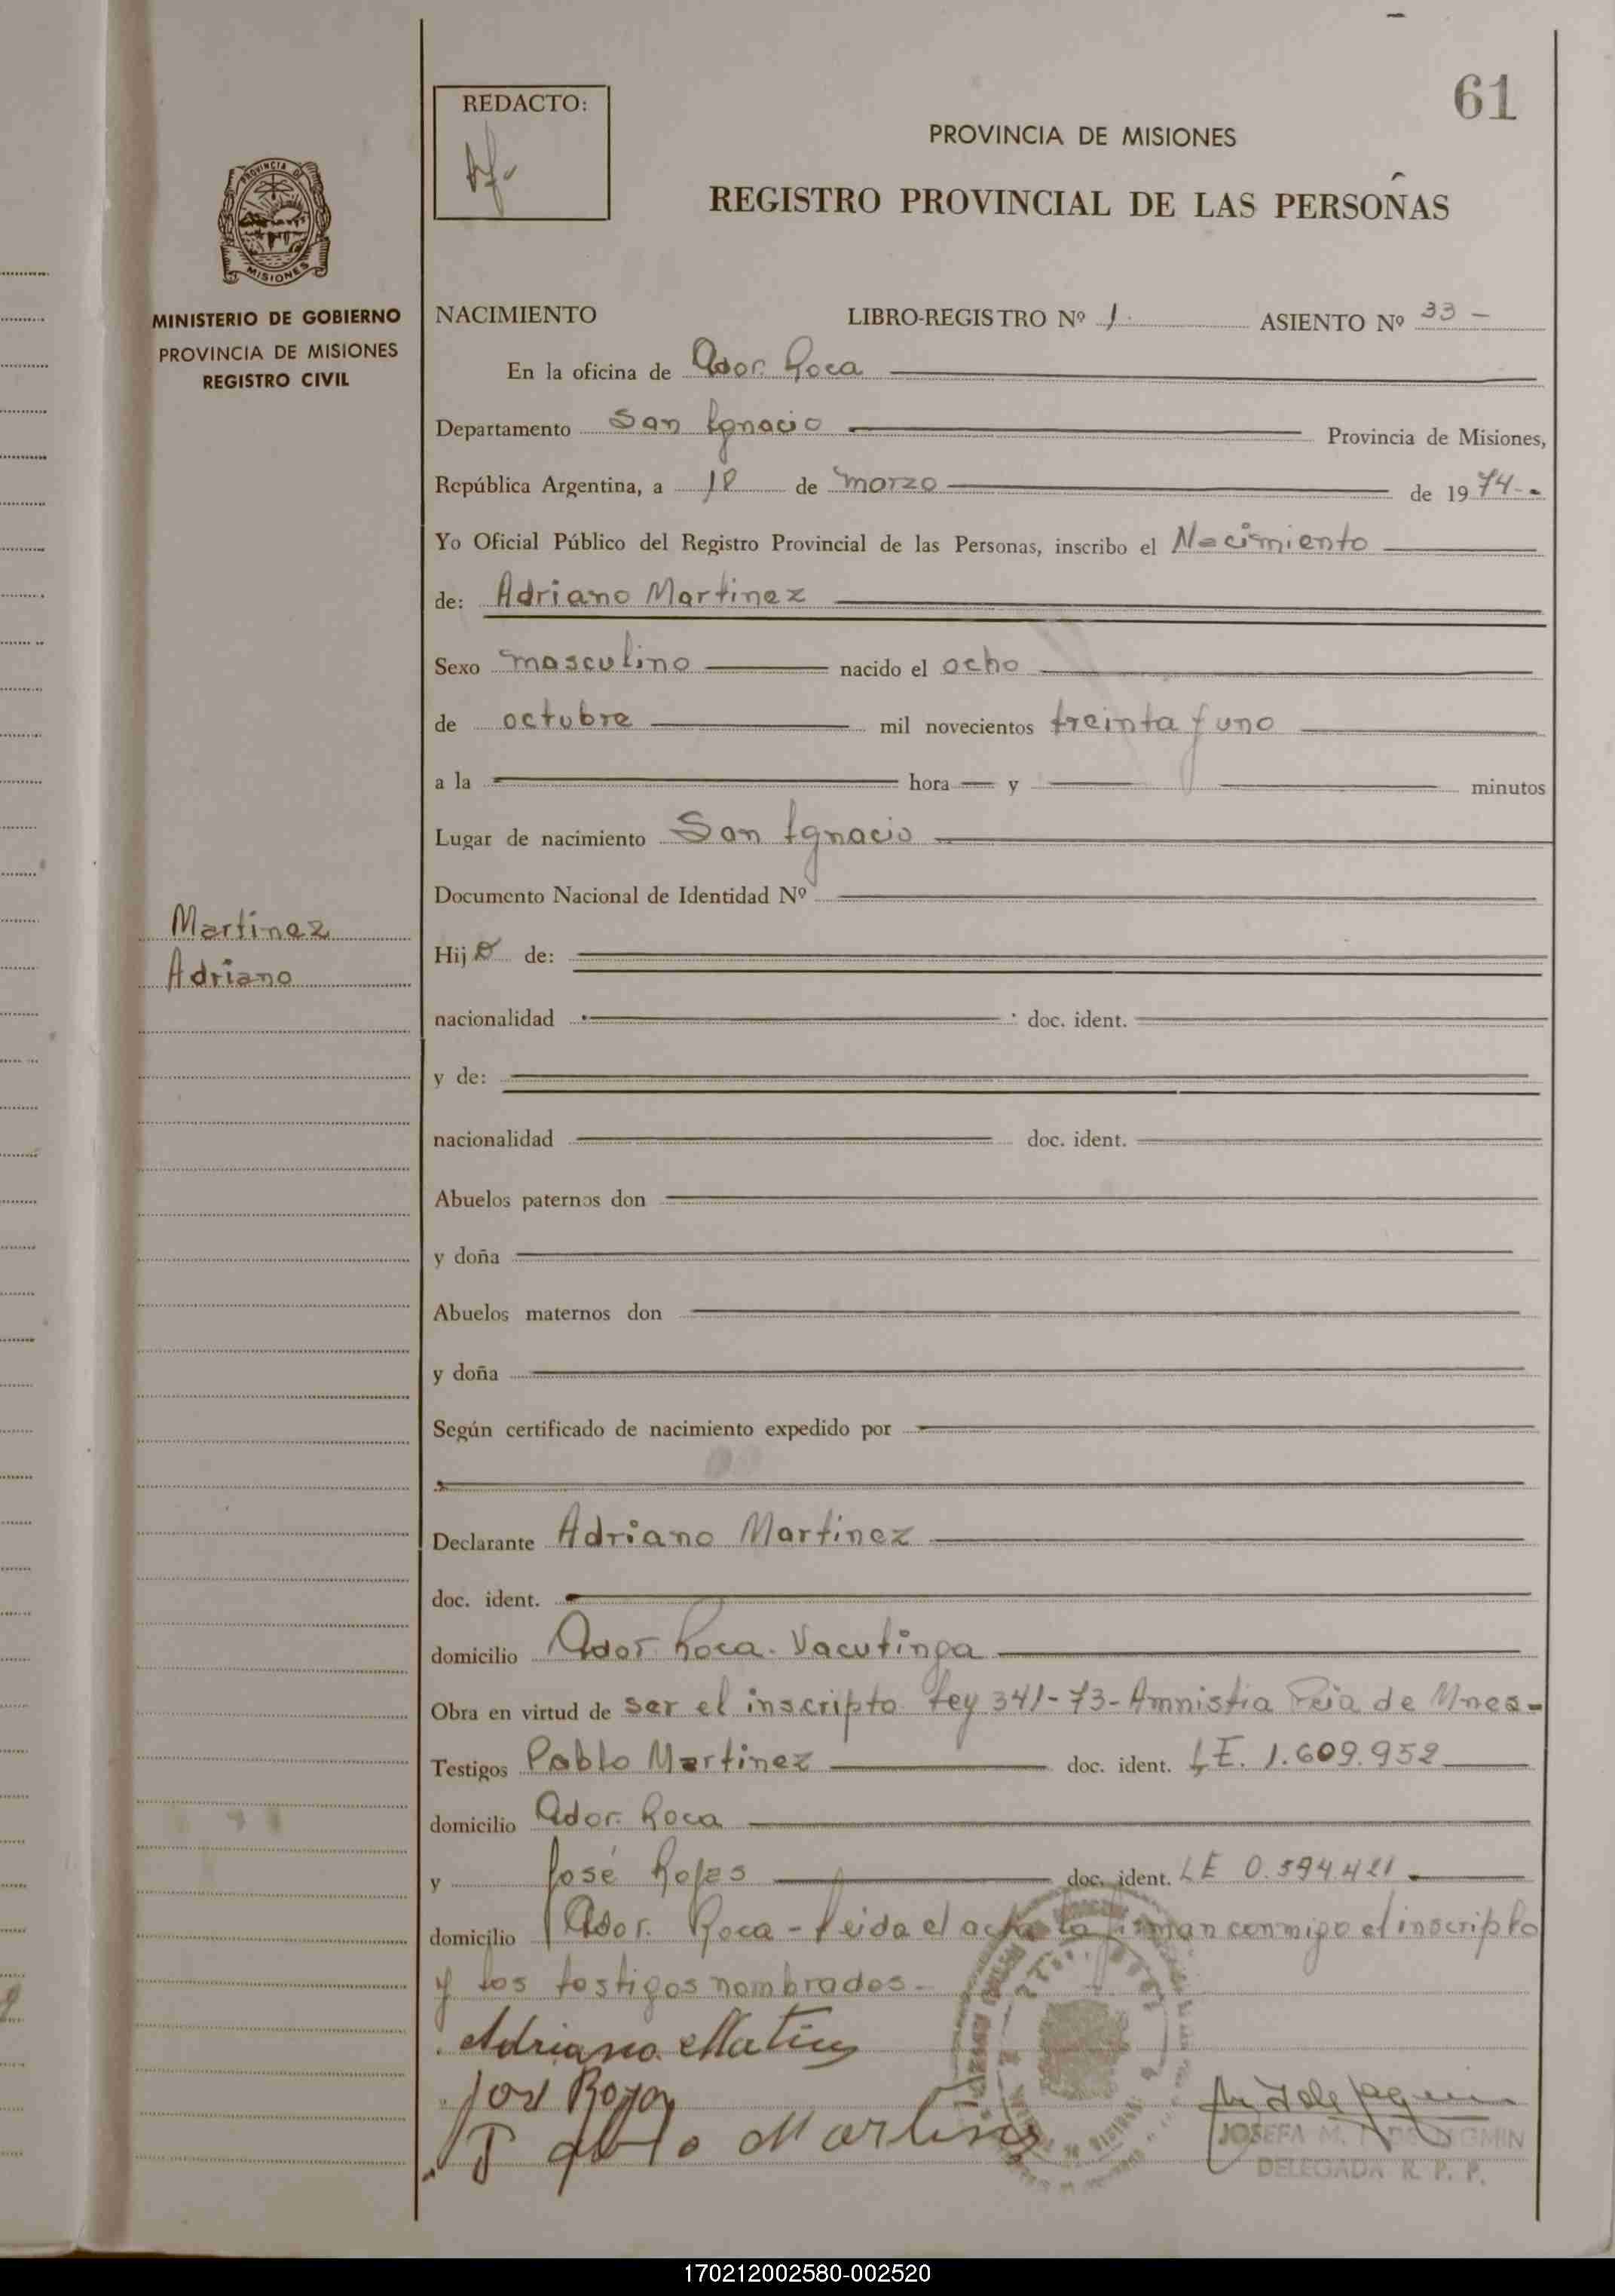 61
REDACTO:
PROVINCIA DE MISIONES
REGISTRO PROVINCIAL DE LAS PERSONAS
PROVINCIA DE
MISIONES
MINISTERIO DE GOBIERNO
PROVINCIA DE MISIONES
REGISTRO CIVIL
NACIMIENTO LIBRO-REGISTRO Nº 1 ASIENTO Nº 33 -
En la oficina de Gdor. Roca
Departamento San Ignacio Provincia de Misiones,
República Argentina, a 18 de marzo de 1974-.
Yo Oficial Público del Registro Provincial de las Personas, inscribo el Nacimiento
de: Adriano Martinez
Sexo masculino nacido el ocho
de octubre mil novecientos treinta y uno
a la hora y minutos
Lugar de nacimiento San Ignacio
Documento Nacional de Identidad Nº
Martinez
Adriano
Hijo de:
nacionalidad doc. ident.
y de:
nacionalidad doc. ident.
Abuelos paternos don
y doña
Abuelos maternos don
y doña
Según certificado de nacimiento expedido por
Declarante Adriano Martinez
doc. ident.
domicilio Gdor. Roca. Yacutinga
Obra en virtud de ser el inscripto Ley 341-73-Amnistia Pcia de Mnes-
Testigos Pablo Martinez doc. ident. LE. 1.609.952
domicilio Gdor. Roca
y José Rojas doc. ident. LE 0.594.421.
domicilio Gdor. Roca - Leida el acta la firman conmigo el inscripto
y los testigos nombrados-
Adriano
Pablo
JOSEFA M. DE
DELEGADA R. P. P.
170212002580-002520